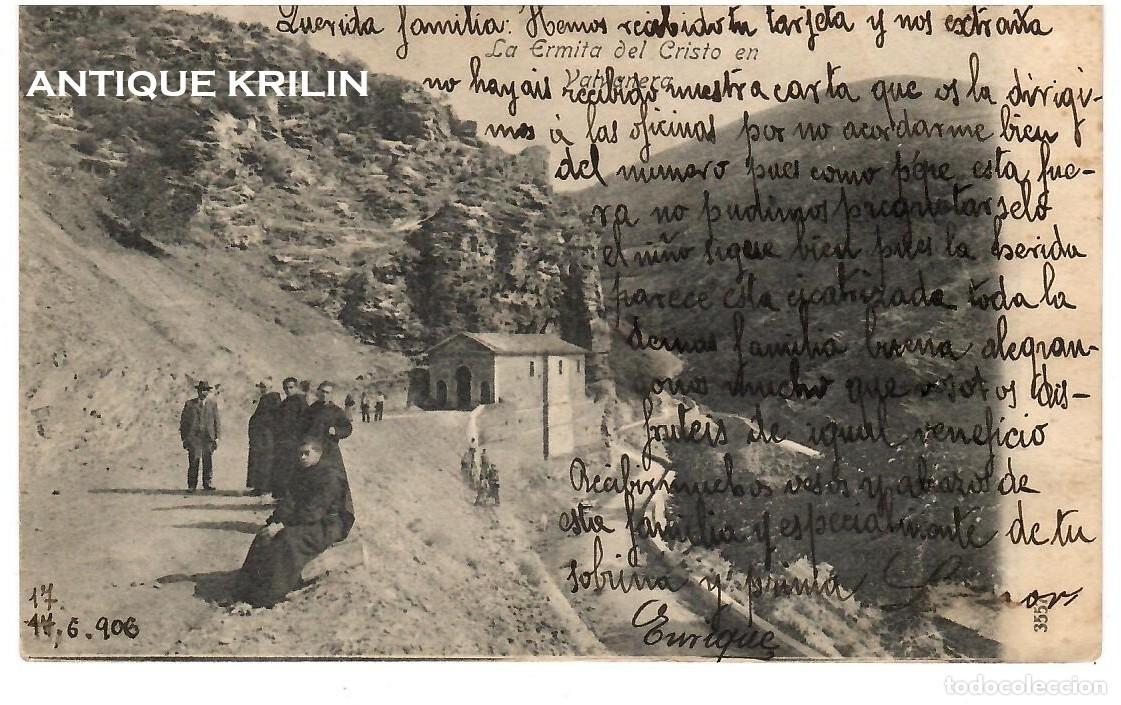 Querida familia: Hemos recibido tu tarjeta y nos extraña
La Ermita del Cristo en
Valvanera
ANTIQUE KRILIN
no hayais recibido nuestra carta que os la dirigi-
mos á las oficinas por no acordarme bien
del numero pues como pépe esta fue-
ra no pudimos preguntarselo
el niño sigue bien pues la herida
parece esta cicatrizada toda la
demas familia buena alegran-
donos mucho que vosotros dis-
fruteis de igual veneficio
Recibir muchos vesos y abazos de
esta familia y especialmente de tu
sobrina y prima
Enrique
17
17.6.906
3557
todocoleccion